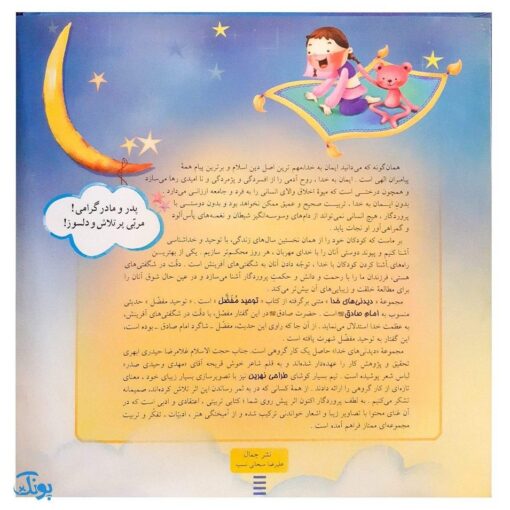 پدر و مادر گرامی!
مربّی پر تلاش و دلسوز!
همان‌گونه که می‌دانید ایمان به خدا، مهم ترین اصل دین اسلام و برترین پیام همهٔ
پیامبران الهی است. ایمان به خدا، روح آدمی را از افسردگی و پژمردگی و نا امیدی رها می‌سازد
و همچون درختی است که میوهٔ اخلاق والای انسانی را به فرد و جامعه ارزانی می‌دارد.
بدون ایمان به خدا، تربیت صحیح و عمیق ممکن نخواهد بود و بدون دوستی با
پروردگار، هیچ انسانی نمی‌تواند از دام‌های وسوسه‌انگیز شیطان و نغمه‌های یأس‌آلود
و گمراهی‌آور او نجات یابد.
بر ماست که کودکان خود را از همان نخستین سال‌های زندگی، با توحید و خداشناسی
آشنا کنیم و پیوند دوستی آنان را با خدای مهربان، هر روز محکم‌تر سازیم. یکی از بهترین
راه‌های آشنا کردن کودکان با خدا، توجّه دادن آنان به شگفتی‌های آفرینش است. دقّت در شگفتی‌های
هستی، فرزندان ما را با رحمت و دانش و حکمت پروردگار آشنا می‌سازد و در عین حال شوق آنان را
برای مطالعهٔ خلقت و زیبایی‌های آن بیش‌تر می‌کند.
مجموعهٔ «دیدنی‌های خدا» متنی برگرفته از کتاب «توحید مُفضّل» است. «توحید مفضّل» حدیثی
منسوب به امام صادق است. حضرت صادق در این گفتار مفضّل، با دقّت در شگفتی‌های آفرینش،
به عظمت خدا استدلال می‌نماید. از آن جا که راوی این حدیث، مفضّل ـ شاگرد امام صادق ـ بوده است،
این گفتار به توحید مفضّل شهرت یافته است.
مجموعهٔ «دیدنی‌های خدا» حاصل یک کار گروهی است. جناب حجت الاسلام غلامرضا حیدری ابهری
تحقیق و پژوهش کار را عهده‌دار شده‌اند و به قلم شاعر خوش قریحه آقای «مهدی وحیدی صدر»
لباس شعر پوشیده است. تیم بسیار کوشای طراحی نهرین نیز با تصویرسازی بسیار زیبای خود، معنای
تازه‌ای از کار گروهی را ارائه دادند. از همهٔ کسانی که در به ثمر رساندن این اثر تلاش کرده‌اند، صمیمانه
تشکر می‌کنیم. به لطف پروردگار اکنون اثر پیش روی شما؛ کتابی تربیتی، اعتقادی و ادبی است که در
آن غنای محتوا با تصاویر زیبا و اشعار خواندنی ترکیب شده و از آمیختگی هنر، ادبیّات، تفکر و تربیت
مجموعه‌ای ممتاز فراهم آمده است.
نشر جمال
علیرضا سبحانی نسب
پونک